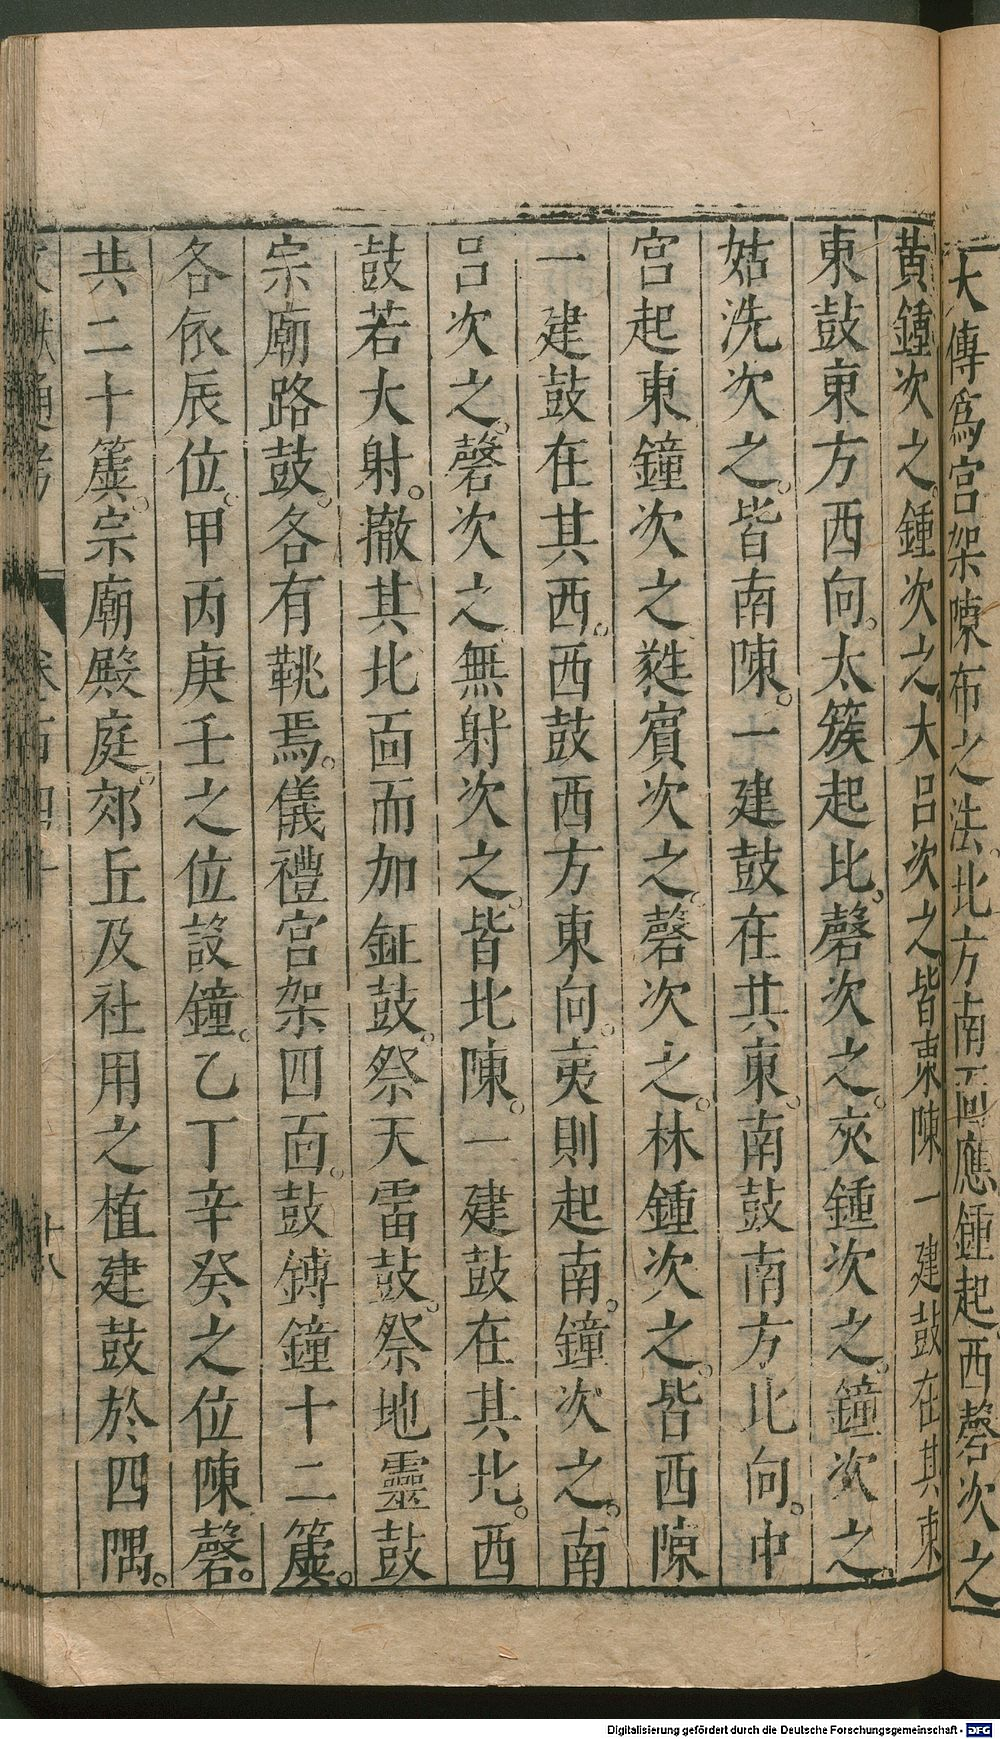 大傳爲宮架陳布之法北方南面應鍾起西磬次之
黃鍾次之鍾次之大呂次之皆東陳一建鼓在其東
東鼓東方西向太簇起北磬次之夾鍾次之鐘次之
姑洗次之皆南陳一建鼓在其東南鼓南方北向中
宮起東鐘次之蕤賓次之磬次之林鍾次之皆西陳
一建鼓在其西西鼓西方東向夷則起南鐘次之南
呂次之磬次之無射次之皆北陳一建鼓在其北西
鼓若大射撤其北面而加鉦鼓祭天雷鼓祭地靈鼓
宗廟路鼓各有鞉焉儀禮宮架四面鼓鎛鐘十二簴
各依辰位甲丙庚壬之位設鐘乙丁辛癸之位陳磬
共二十簴宗廟殿庭郊丘及社用之植建鼓於四隅
文獻通考
卷百四十
十八
Digitalisierung gefördert durch die Deutsche Forschungsgemeinschaft - DFG